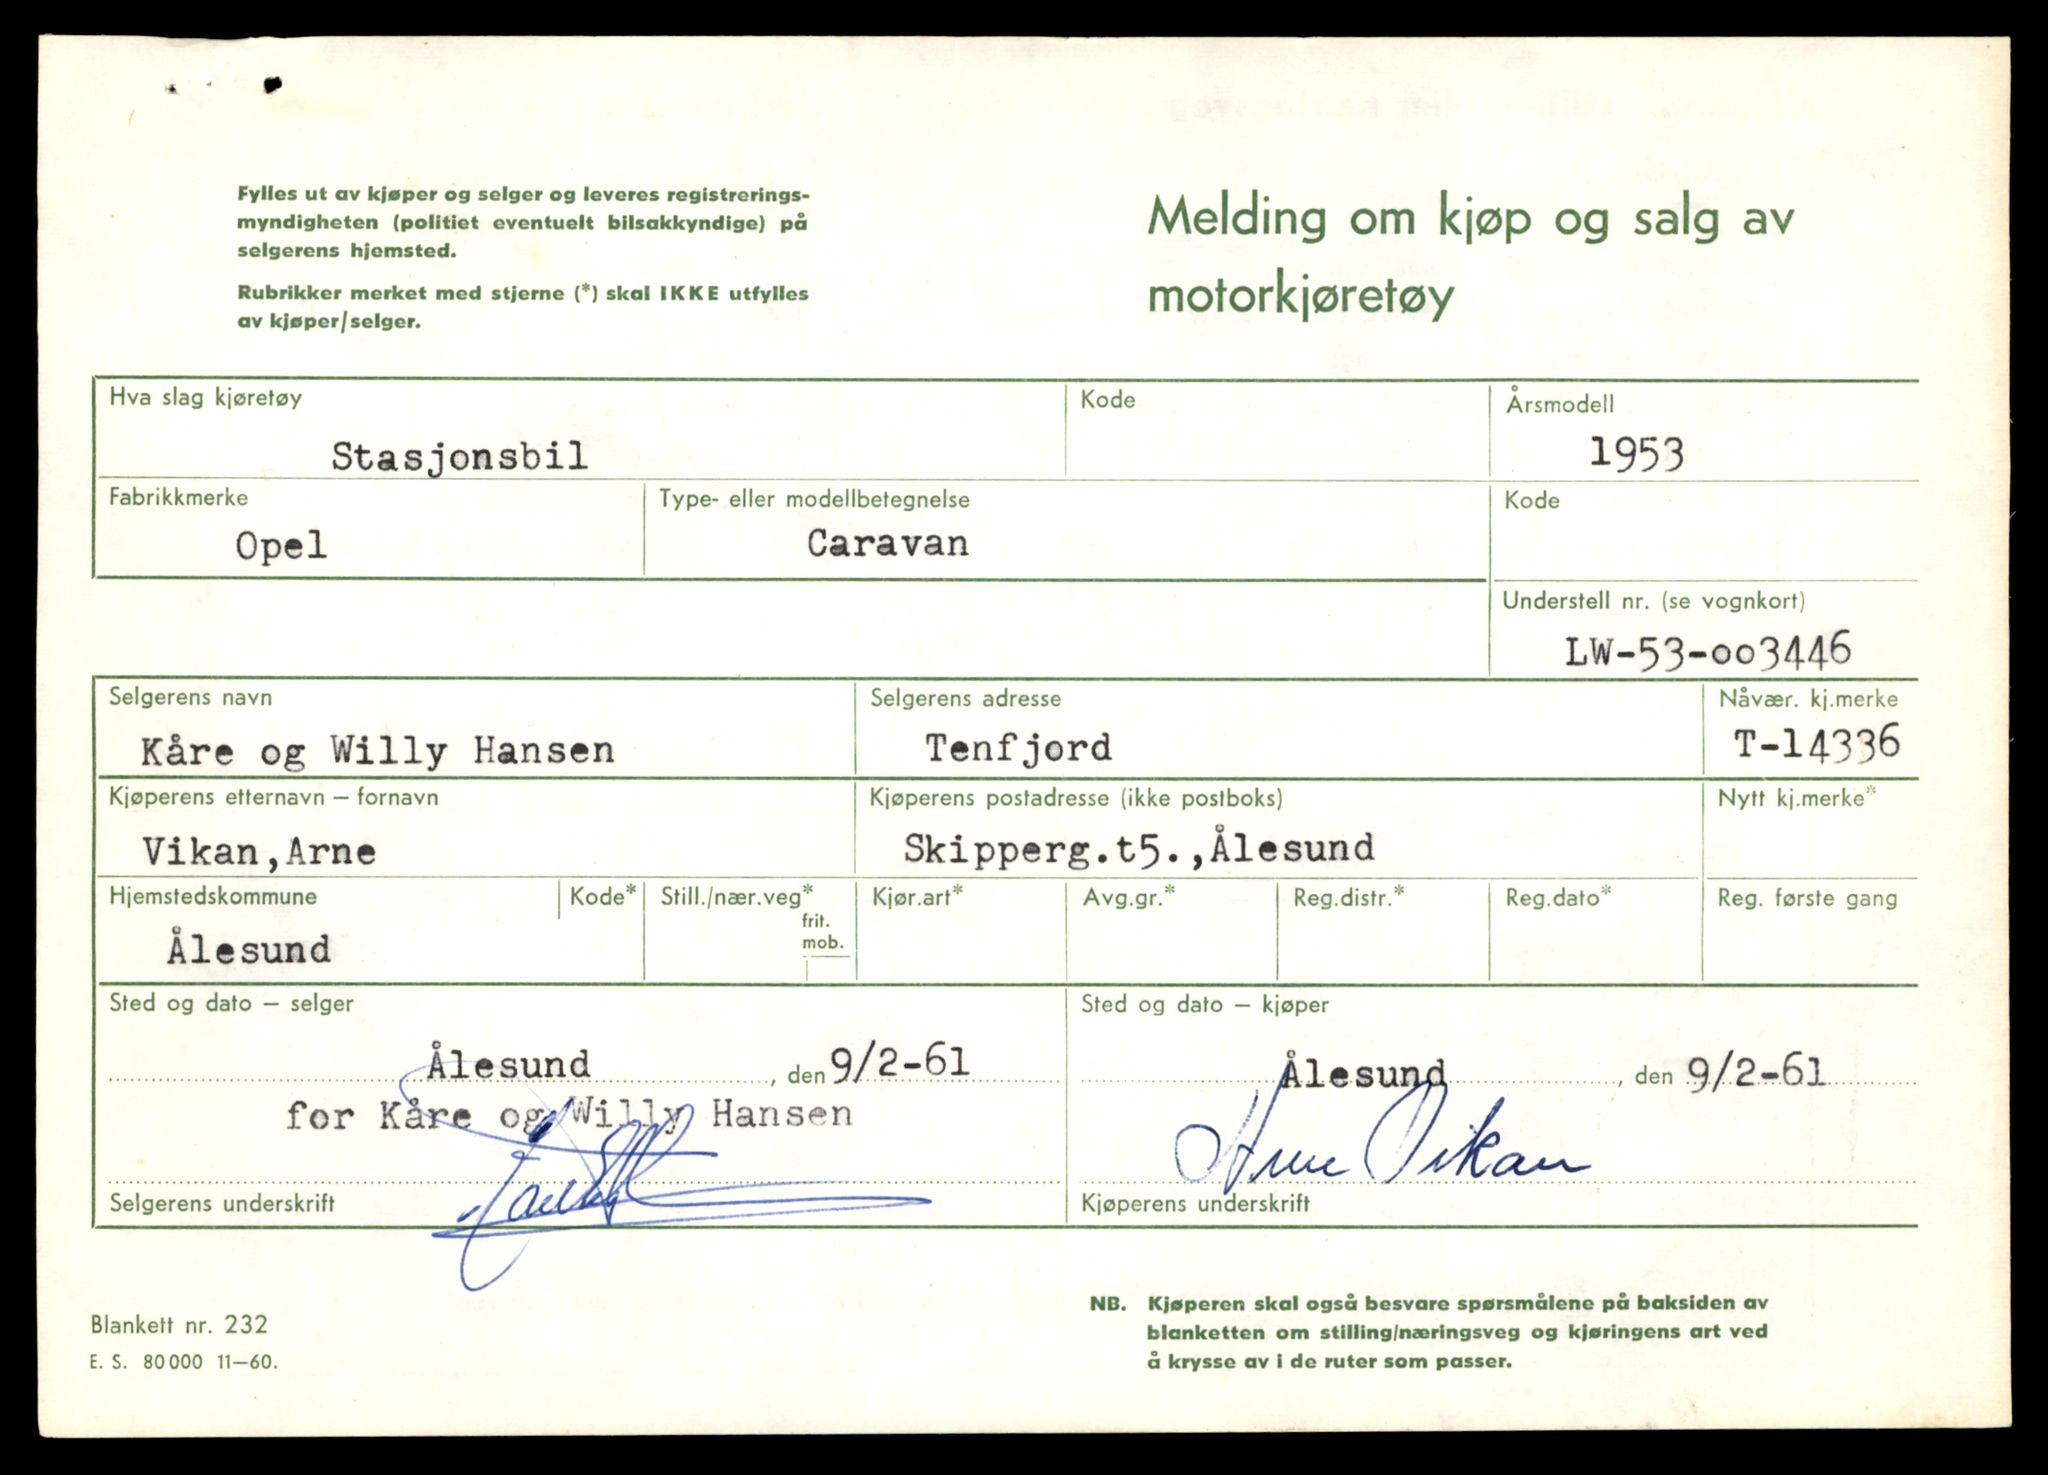 Fylles ut av kjøper og selger og leveres registrerings-
myndigheten (politiet eventuelt bilsakkyndige) på
selgerens hjemsted.
Rubrikker merket med stjerne (*) skal IKKE utfylles
av kjøper/selger.
Melding om kjøp og salg av
motorkjøretøy
Hva slag kjøretøy
Stasjonsbil
Kode
Årsmodell
1953
Fabrikkmerke
Opel
Type- eller modellbetegnelse
Caravan
Kode
Understell nr. (se vognkort)
LW-53-oo3446
Selgerens navn
Kåre og Willy Hansen
Selgerens adresse
Tenfjord
Nåvær. kj.merke
T-14336
Kjøperens etternavn – fornavn
Vikan,Arne
Kjøperens postadresse (ikke postboks)
Skipperg.t5.,Ålesund
Nytt kj.merke*
Hjemstedskommune
Ålesund
Kode*
Still./nær.veg*
frit.
mob.
Kjør.art*
Avg.gr.*
Reg.distr.*
Reg.dato*
Reg. første gang
Sted og dato – selger
Ålesund , den 9/2-61
for Kåre og Willy Hansen
Selgerens underskrift
Sted og dato – kjøper
Ålesund , den 9/2-61
Arne Vikan
Kjøperens underskrift
Blankett nr. 232
E. S. 80000 11–60.
NB. Kjøperen skal også besvare spørsmålene på baksiden av
blanketten om stilling/næringsveg og kjøringens art ved
å krysse av i de ruter som passer.